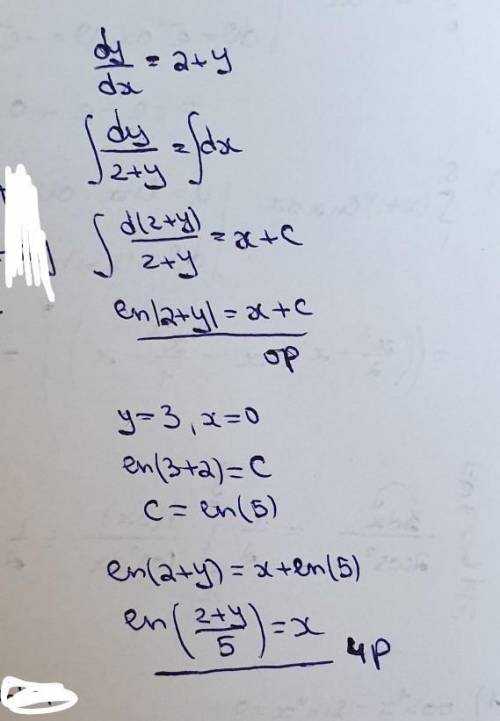 dy/dx = 2+y
∫ dy/2+y = ∫dx
∫ d(2+y)/2+y = x+c
en|2+y| = x+c
op
y=3, x=0
en(3+2) = C
C = en(5)
en(2+y) = x+en(5)
en(2+y/5) = x
чp